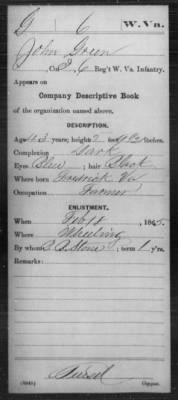 G 6 W. Va.
John Green
, Co. I, 6 Reg't W. Va. Infantry.
Appears on
Company Descriptive Book
of the organization named above.
DESCRIPTION.
Age 43 years; height 5 feet inches.
Complexion Dark
Eyes Blue; hair Black
Where born Va
Occupation Farmer
ENLISTMENT.
When Feb 18, 1865.
Where Wheeling
By whom Stone; term 1 y'rs.
Remarks:
Copyist.